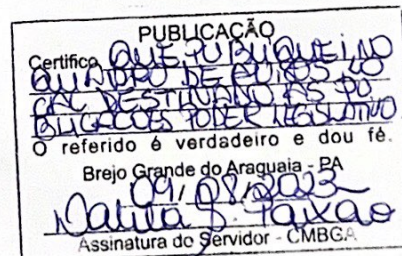 PUBLICAÇÃO
Certifico QUE PUBLIQUEI NO
QUADRO DE AVISOS LO
CAL DESTINADO AS PU
BLICAÇÕES PODER LEGISLATIVO
O referido é verdadeiro e dou fé.
Brejo Grande do Araguaia - PA
09/08/2023
Paixão
Assinatura do Servidor - CMBGA